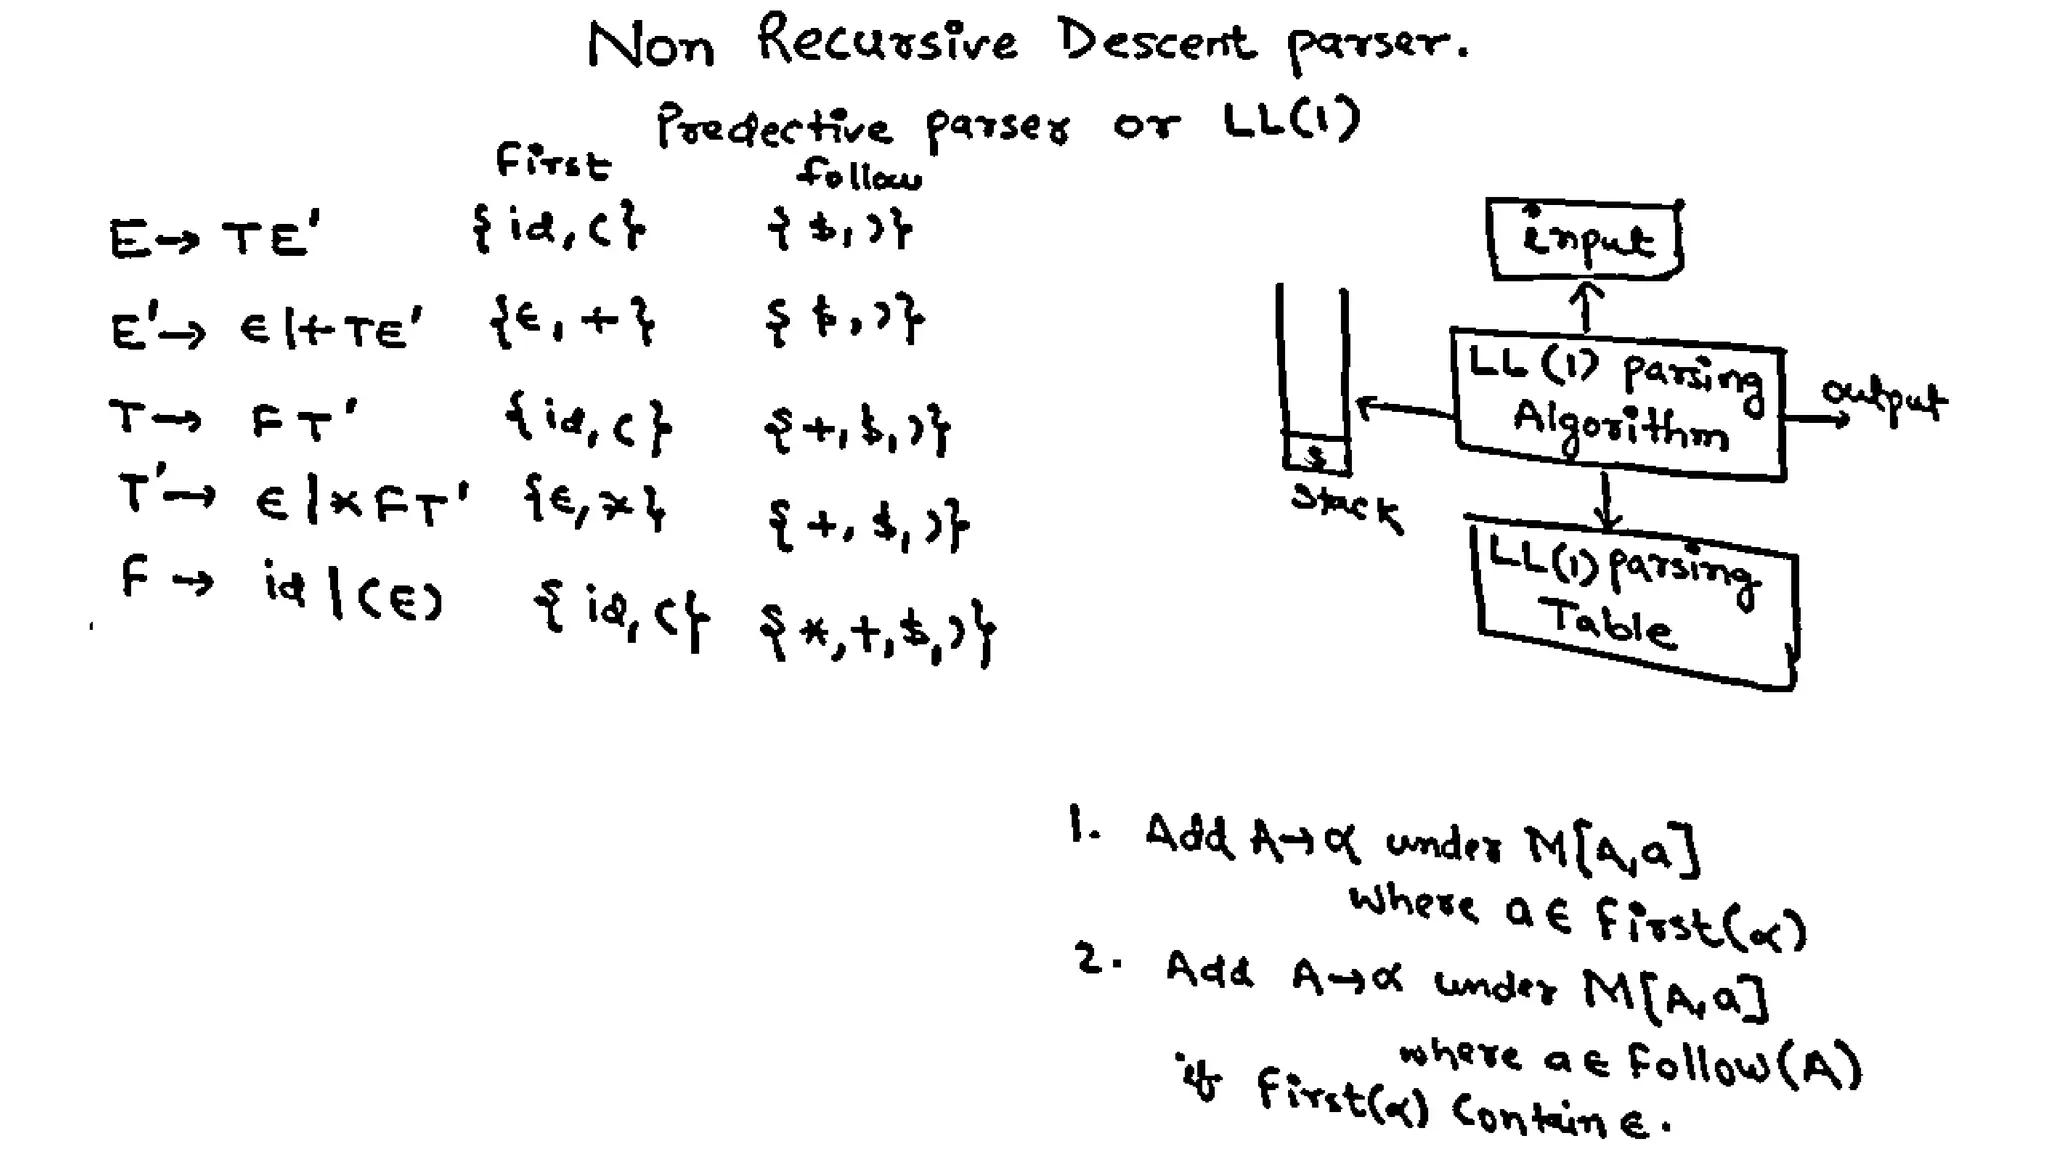 Non Recursive Descent parser.
Predective parser or LL(1)
First follow
E→ TE' {id, (} {$, )}
E'→ ϵ|+TE' {ϵ, +} {$, )}
T→ FT' {id, (} {+, $, )}
T'→ ϵ|*FT' {ϵ, *} {+, $, )}
F→ id|(E) {id, (} {*, +, $, )}
input
LL(1) parsing
Algorithm
output
$
Stack
LL(1) parsing
Table
1. Add A→α under M[A,a]
where a ∈ First(α)
2. Add A→α under M[A,a]
where a ∈ Follow(A)
if First(α) Contain ϵ.